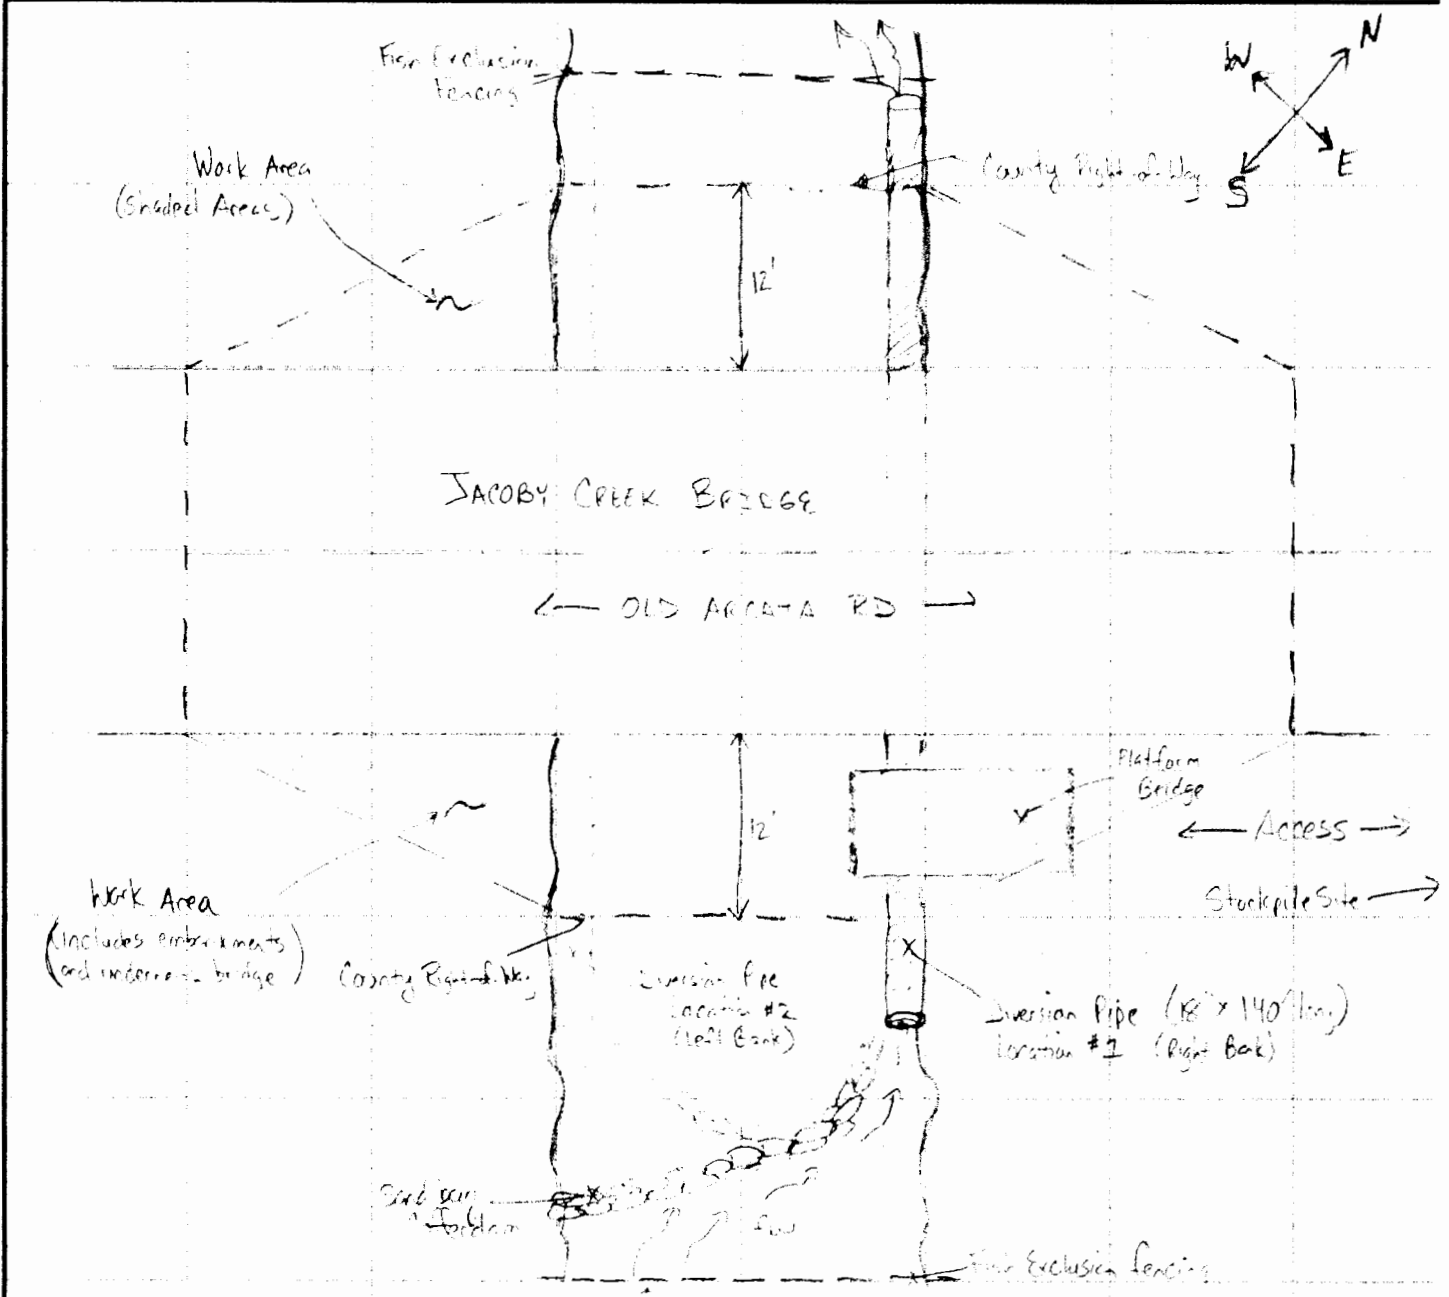 N
W
E
S
Fish Exclusion
Fencing
Work Area
(Shaded Areas)
County Right-of-Way
12'
JACOBY CREEK BRIDGE
OLD ARCATA RD
Platform
Bridge
12'
Access
Stockpile Site
Work Area
(includes embankments
and underneath bridge)
County Right-of-Way
Diversion Pipe
Location #2
(Left Bank)
Diversion Pipe (18" x 140' long)
Location #1 (Right Bank)
Sand bag
Cofferdam
flow
Fish Exclusion fencing